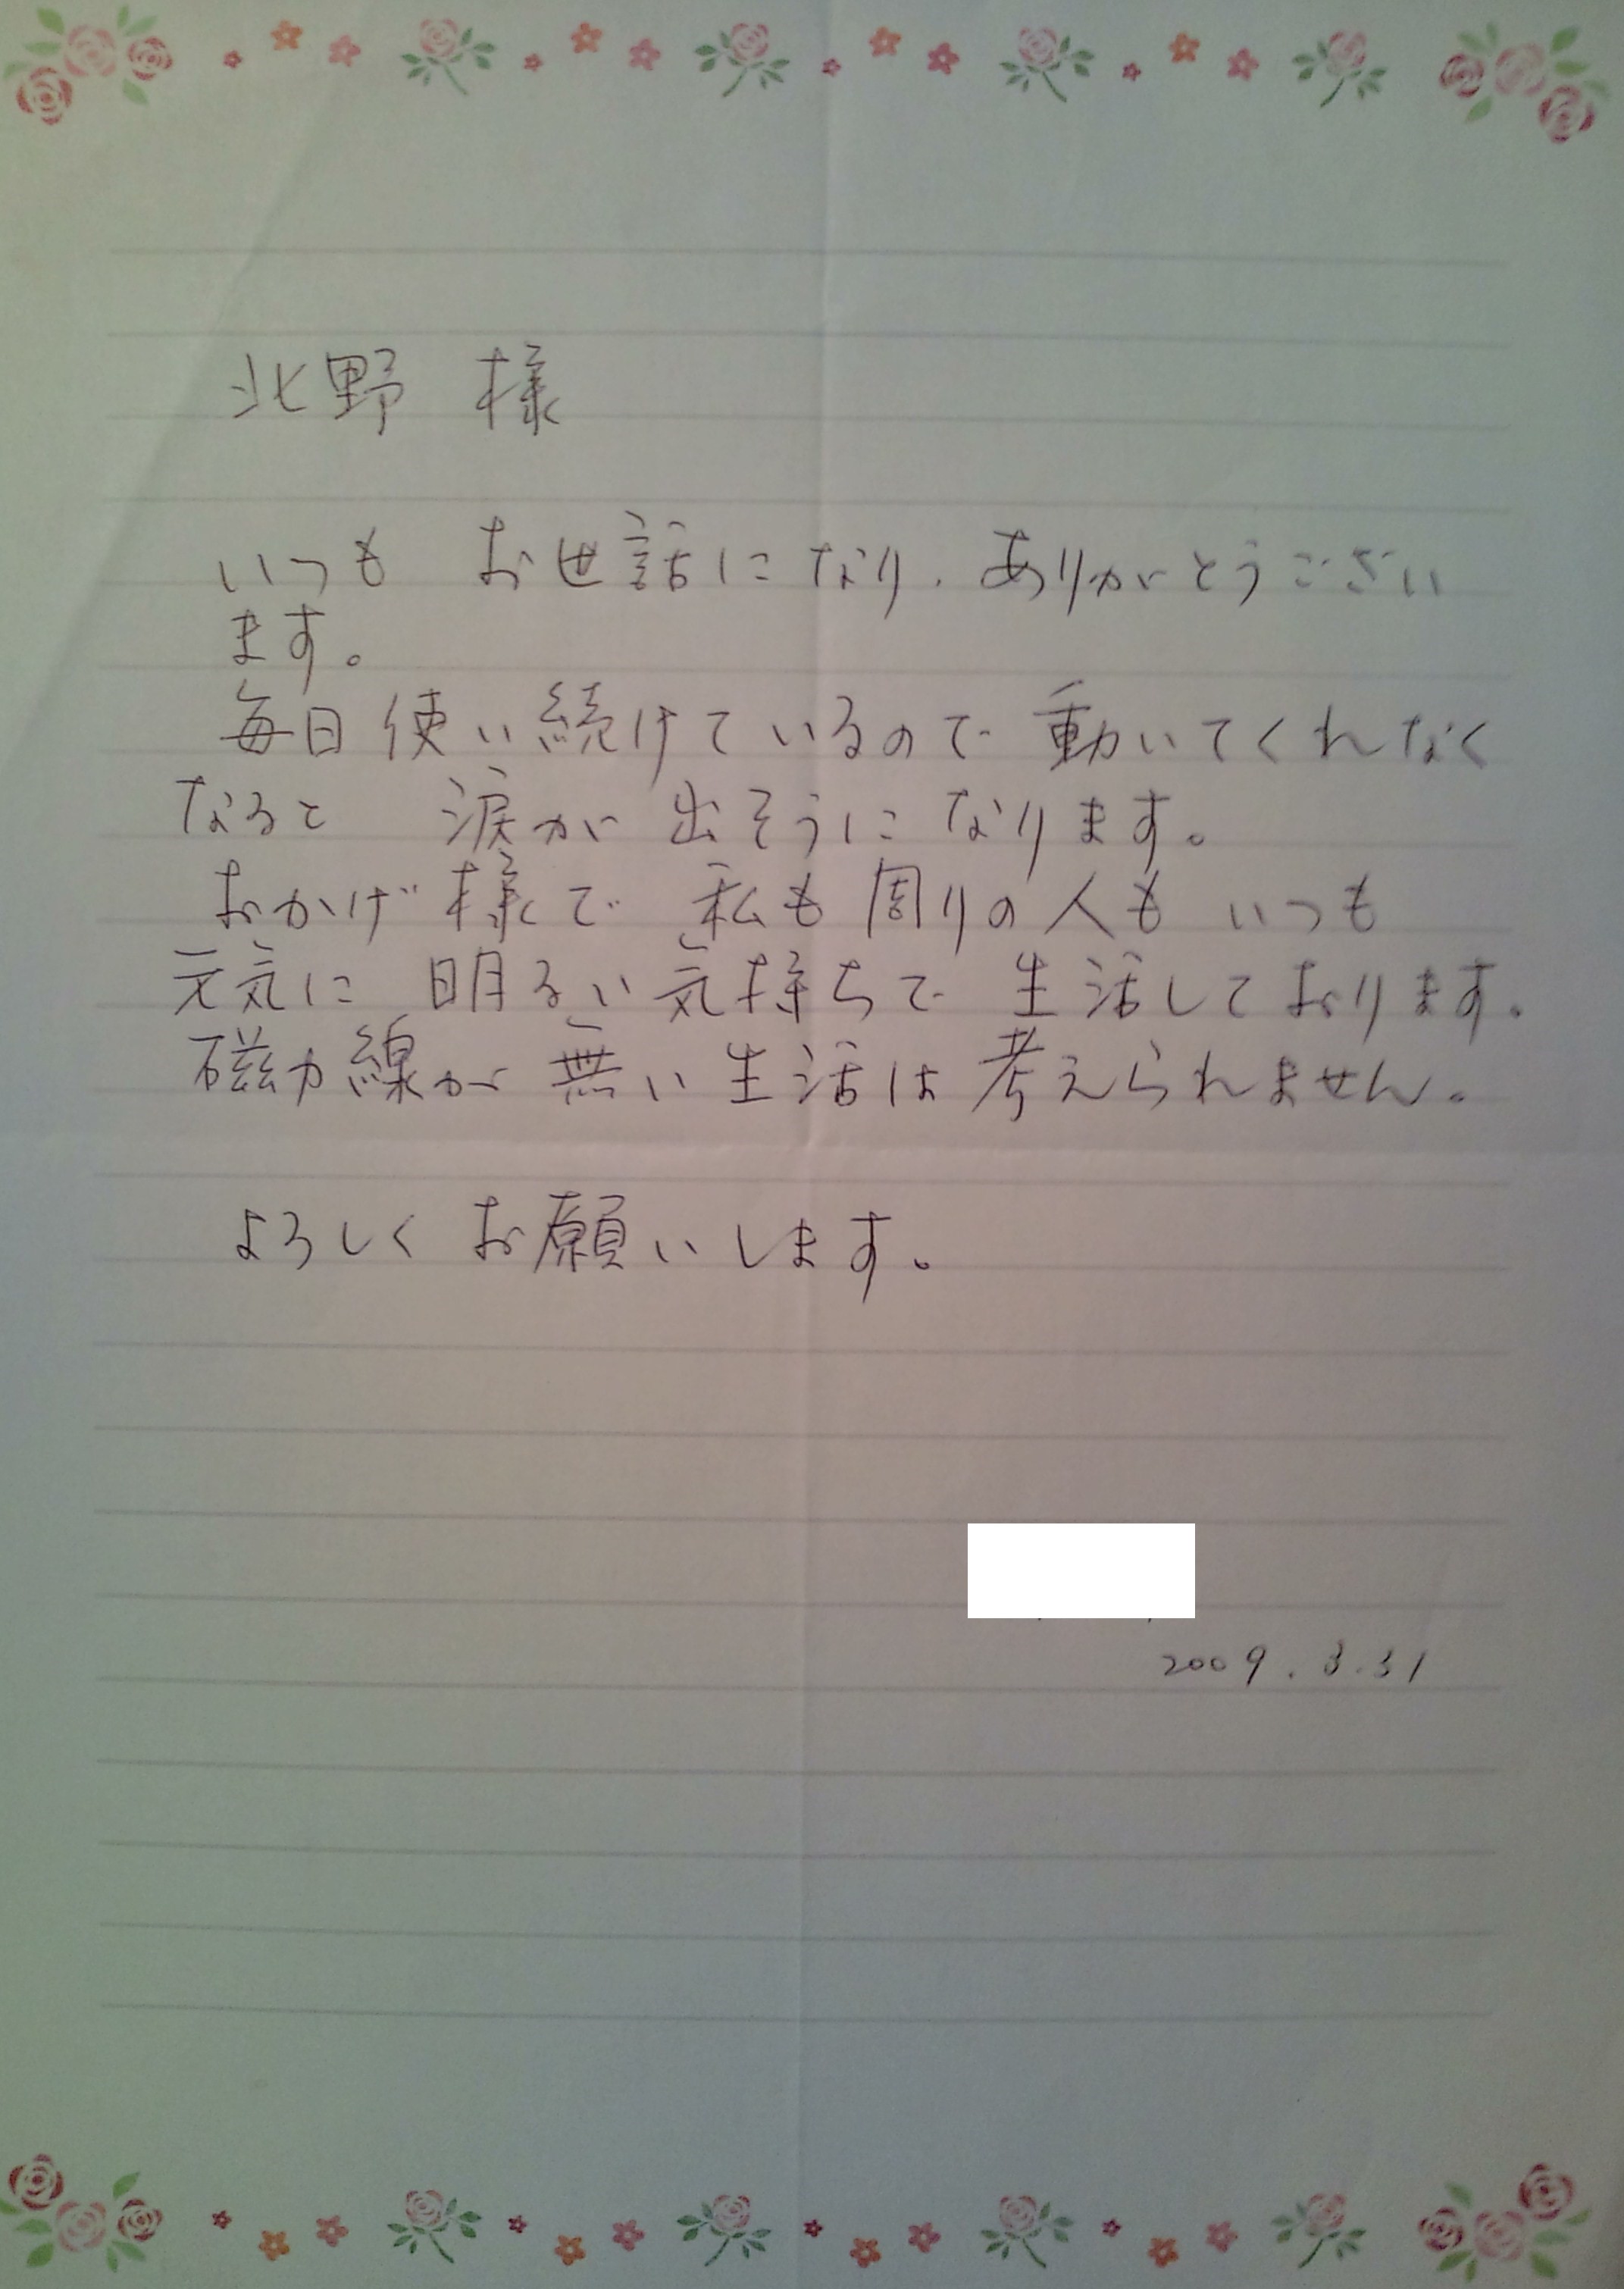 北野 様
いつも お世話になり、ありがとうござい
ます。
毎日使い続けているので 動いてくれなく
なると 涙が 出そうになります。
おかげ様で 私も周りの人も いつも
元気に 明るい気持ちで 生活しております。
磁力線が無い生活は考えられません。
よろしく お願いします。
2009.3.31